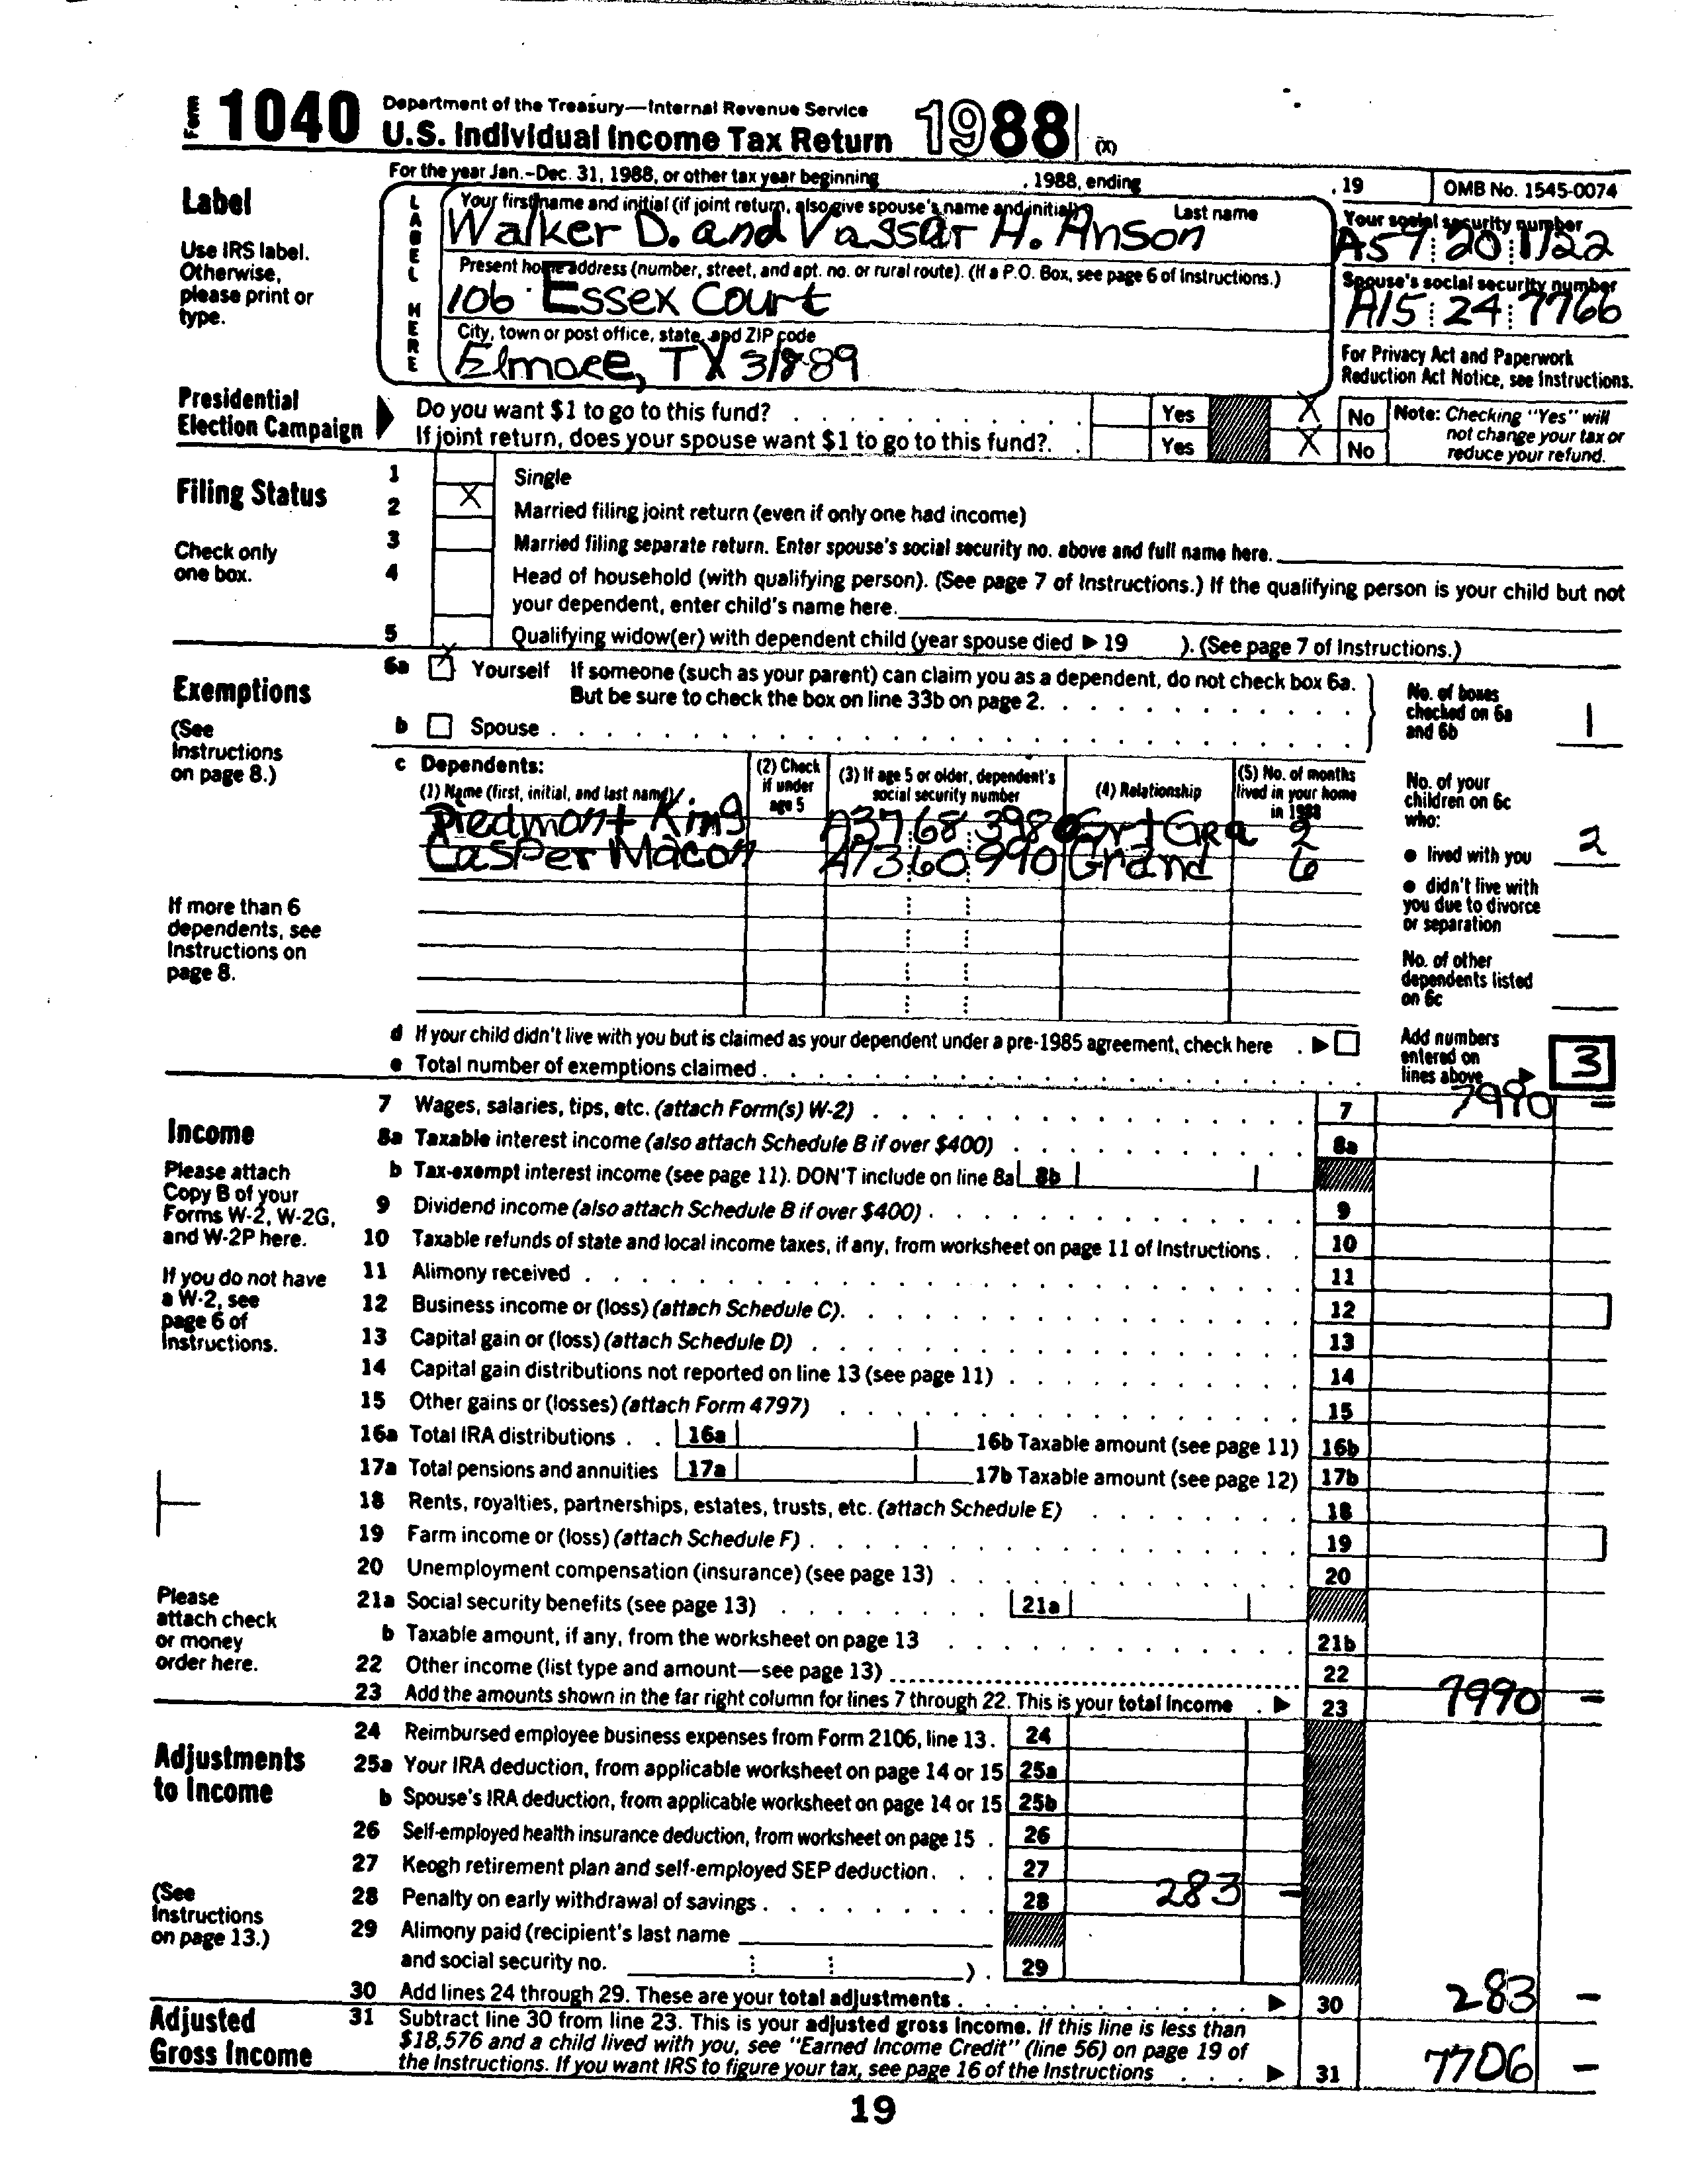 Form 1040 Department of the Treasury—Internal Revenue Service
U.S. Individual Income Tax Return 1988 (X)
For the year Jan.-Dec. 31, 1988, or other tax year beginning , 1988, ending , 19 OMB No. 1545-0074
Label
Use IRS label. Otherwise, please print or type.
LABEL HERE
Your first name and initial (if joint return, also give spouse's name and initial) Last name
Walker D. and Vassar H. Anson
Your social security number
A57 20 1122
Present home address (number, street, and apt. no. or rural route). (If a P.O. Box, see page 6 of Instructions.)
106 Essex Court
Spouse's social security number
A15 24 7766
City, town or post office, state, and ZIP code
Elmore, TX 31889
For Privacy Act and Paperwork Reduction Act Notice, see Instructions.
Presidential Election Campaign
Do you want $1 to go to this fund? Yes X No
If joint return, does your spouse want $1 to go to this fund? Yes X No
Note: Checking "Yes" will not change your tax or reduce your refund.
Filing Status
Check only one box.
1 Single
2 X Married filing joint return (even if only one had income)
3 Married filing separate return. Enter spouse's social security no. above and full name here.
4 Head of household (with qualifying person). (See page 7 of Instructions.) If the qualifying person is your child but not
your dependent, enter child's name here.
5 Qualifying widow(er) with dependent child (year spouse died ▶ 19 ). (See page 7 of Instructions.)
Exemptions
(See Instructions on page 8.)
6a X Yourself If someone (such as your parent) can claim you as a dependent, do not check box 6a.
But be sure to check the box on line 33b on page 2.
b Spouse
No. of boxes checked on 6a and 6b 1
c Dependents:
(1) Name (first, initial, and last name)
(2) Check if under age 5
(3) If age 5 or older, dependent's social security number
(4) Relationship
(5) No. of months lived in your home in 1988
Piedmont King A37 68 3980 Grt Gra 2
Casper Macon A73 60 990 Grand 6
No. of your children on 6c who:
• lived with you 2
• didn't live with you due to divorce or separation
No. of other dependents listed on 6c
If more than 6 dependents, see Instructions on page 8.
d If your child didn't live with you but is claimed as your dependent under a pre-1985 agreement, check here ▶
e Total number of exemptions claimed
Add numbers entered on lines above ▶ 3
Income
Please attach Copy B of your Forms W-2, W-2G, and W-2P here.
If you do not have a W-2, see page 6 of Instructions.
Please attach check or money order here.
7 Wages, salaries, tips, etc. (attach Form(s) W-2) 7 7990 —
8a Taxable interest income (also attach Schedule B if over $400) 8a
b Tax-exempt interest income (see page 11). DON'T include on line 8a 8b
9 Dividend income (also attach Schedule B if over $400) 9
10 Taxable refunds of state and local income taxes, if any, from worksheet on page 11 of Instructions 10
11 Alimony received 11
12 Business income or (loss) (attach Schedule C) 12
13 Capital gain or (loss) (attach Schedule D) 13
14 Capital gain distributions not reported on line 13 (see page 11) 14
15 Other gains or (losses) (attach Form 4797) 15
16a Total IRA distributions 16a 16b Taxable amount (see page 11) 16b
17a Total pensions and annuities 17a 17b Taxable amount (see page 12) 17b
18 Rents, royalties, partnerships, estates, trusts, etc. (attach Schedule E) 18
19 Farm income or (loss) (attach Schedule F) 19
20 Unemployment compensation (insurance) (see page 13) 20
21a Social security benefits (see page 13) 21a
b Taxable amount, if any, from the worksheet on page 13 21b
22 Other income (list type and amount—see page 13) 22
23 Add the amounts shown in the far right column for lines 7 through 22. This is your total income ▶ 23 7990 —
Adjustments to Income
(See Instructions on page 13.)
24 Reimbursed employee business expenses from Form 2106, line 13. 24
25a Your IRA deduction, from applicable worksheet on page 14 or 15 25a
b Spouse's IRA deduction, from applicable worksheet on page 14 or 15 25b
26 Self-employed health insurance deduction, from worksheet on page 15 26
27 Keogh retirement plan and self-employed SEP deduction 27
28 Penalty on early withdrawal of savings 28 283 —
29 Alimony paid (recipient's last name
and social security no. ) 29
30 Add lines 24 through 29. These are your total adjustments ▶ 30 283 —
Adjusted Gross Income
31 Subtract line 30 from line 23. This is your adjusted gross income. If this line is less than
$18,576 and a child lived with you, see "Earned Income Credit" (line 56) on page 19 of
the Instructions. If you want IRS to figure your tax, see page 16 of the Instructions ▶ 31 7706 —
19